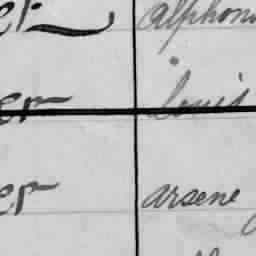 er alphons
er Louis
er arsene